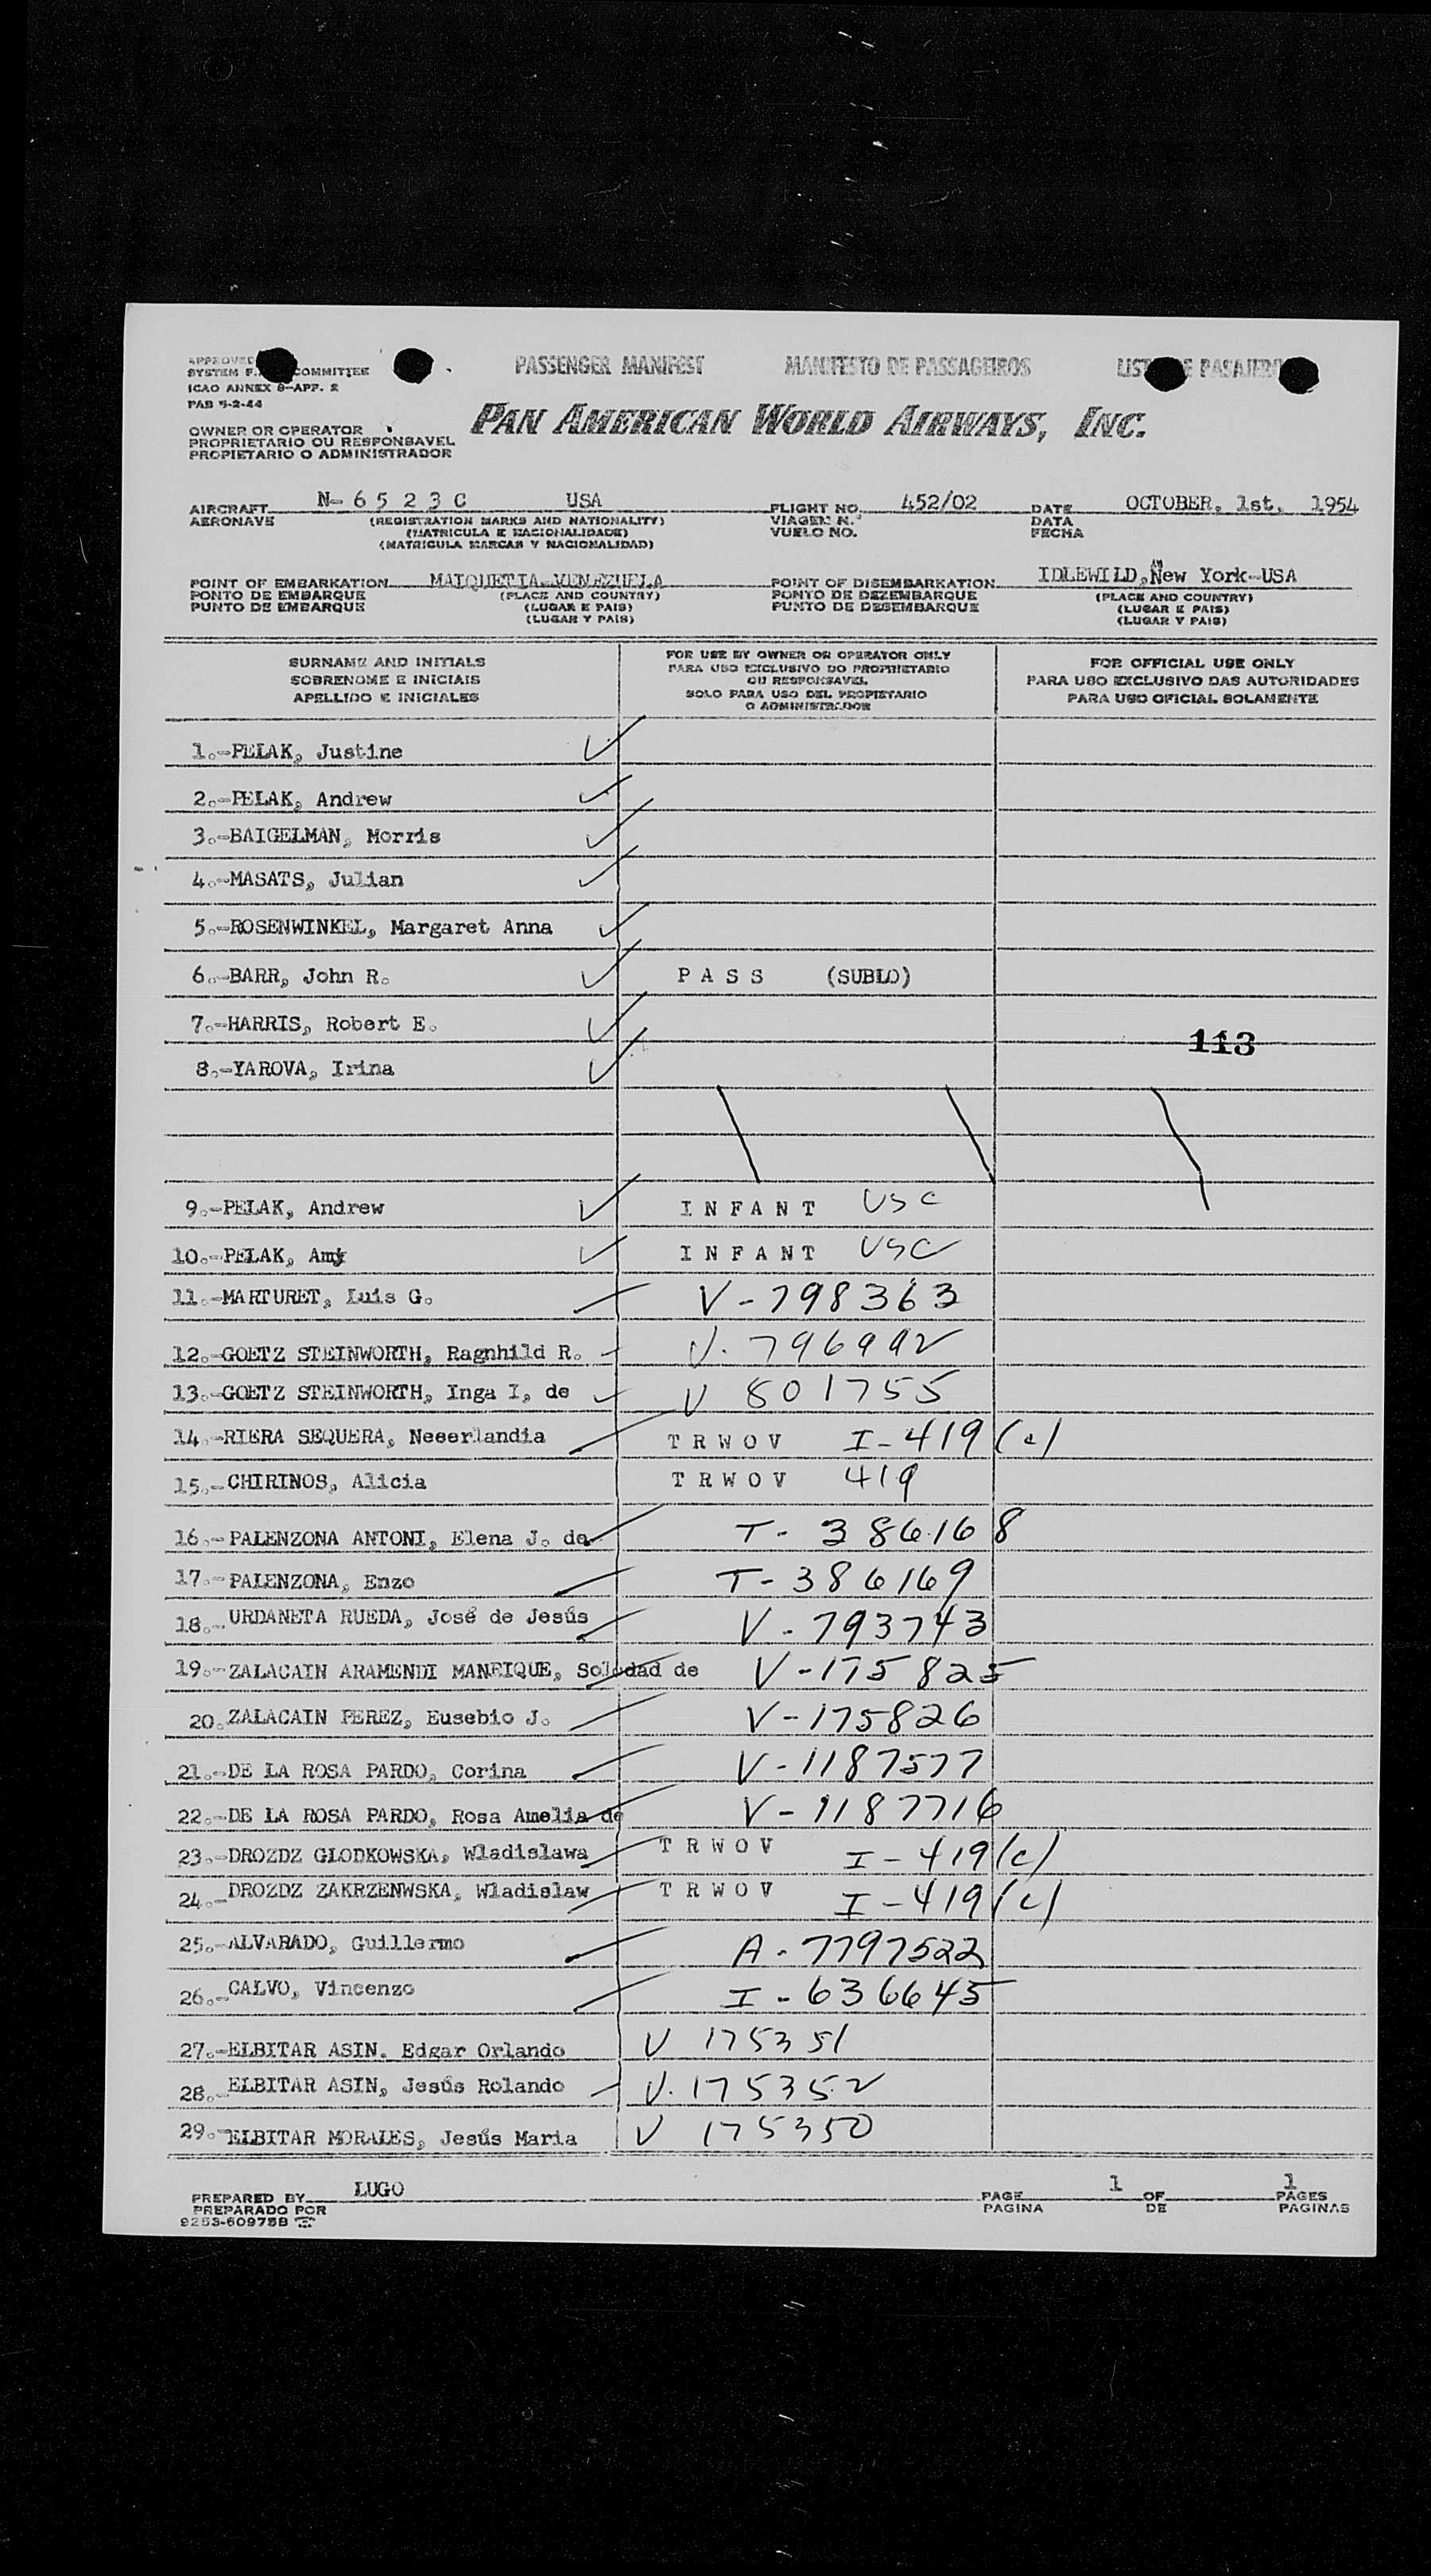 APPROVED
SYSTEM F. COMMITTEE
ICAO ANNEX 9-APP. 2
PAB 5-2-44
PASSENGER MANIFEST MANIFESTO DE PASSAGEIROS LIST E PASAJERO
OWNER OR OPERATOR
PROPRIETARIO OU RESPONSAVEL
PROPIETARIO O ADMINISTRADOR
PAN AMERICAN WORLD AIRWAYS, INC.
AIRCRAFT N- 6 5 2 3 C USA FLIGHT NO. 452/02 DATE OCTOBER, 1st, 1954
AERONAVE (REGISTRATION MARKS AND NATIONALITY) VIAGEM N. DATA
(MATRICULA E NACIONALIDADE) VUELO NO. FECHA
(MATRICULA MARCAS Y NACIONALIDAD)
POINT OF EMBARKATION MAIQUETIA-VENEZUELA POINT OF DISEMBARKATION IDLEWILD, New York-USA
PONTO DE EMBARQUE (PLACE AND COUNTRY) PONTO DE DEZEMBARQUE (PLACE AND COUNTRY)
PUNTO DE EMBARQUE (LUGAR E PAIS) PUNTO DE DESEMBARQUE (LUGAR E PAIS)
(LUGAR Y PAIS) (LUGAR Y PAIS)
SURNAME AND INITIALS
SOBRENOME E INICIAIS
APELLIDO E INICIALES
FOR USE BY OWNER OR OPERATOR ONLY
PARA USO EXCLUSIVO DO PROPRIETARIO
OU RESPONSAVEL
SOLO PARA USO DEL PROPIETARIO
O ADMINISTRADOR
FOR OFFICIAL USE ONLY
PARA USO EXCLUSIVO DAS AUTORIDADES
PARA USO OFICIAL SOLAMENTE
1.-PELAK, Justine
2.-PELAK, Andrew
3.-BAIGELMAN, Morris
4.-MASATS, Julian
5.-ROSENWINKEL, Margaret Anna
6.-BARR, John R. P A S S (SUBLO)
7.-HARRIS, Robert E.
113
8.-YAROVA, Irina
9.-PELAK, Andrew I N F A N T USC
10.-PELAK, Amy I N F A N T USC
11.-MARTURET, Luis G. V-798363
12.-GOETZ STEINWORTH, Ragnhild R. V. 796992
13.-GOETZ STEINWORTH, Inga I, de V 801755
14.-RIERA SEQUERA, Neeerlandia T R W O V I-419(c)
15.-CHIRINOS, Alicia T R W O V 419
16.-PALENZONA ANTONI, Elena J. de T- 386168
17.-PALENZONA, Enzo T-386169
18.-URDANETA RUEDA, José de Jesús V-793743
19.-ZALACAIN ARAMENDI MANRIQUE, Soledad de V-175825
20.ZALACAIN PEREZ, Eusebio J. V-175826
21.-DE LA ROSA PARDO, Corina V-1187577
22.-DE LA ROSA PARDO, Rosa Amelia de V-1187716
23.-DROZDZ GLODKOWSKA, Wladislawa T R W O V I-419(c)
24.-DROZDZ ZAKRZENWSKA, Wladislaw T R W O V I-419(c)
25.-ALVARADO, Guillermo A-7797522
26.-CALVO, Vincenzo I-636645
27.-ELBITAR ASIN. Edgar Orlando V 175351
28.-ELBITAR ASIN, Jesús Rolando V.175352
29.-ELBITAR MORALES, Jesús Maria V 175350
PREPARED BY LUGO PAGE 1 OF 1 PAGES
PREPARADO POR PAGINA DE PAGINAS
9253-60975B